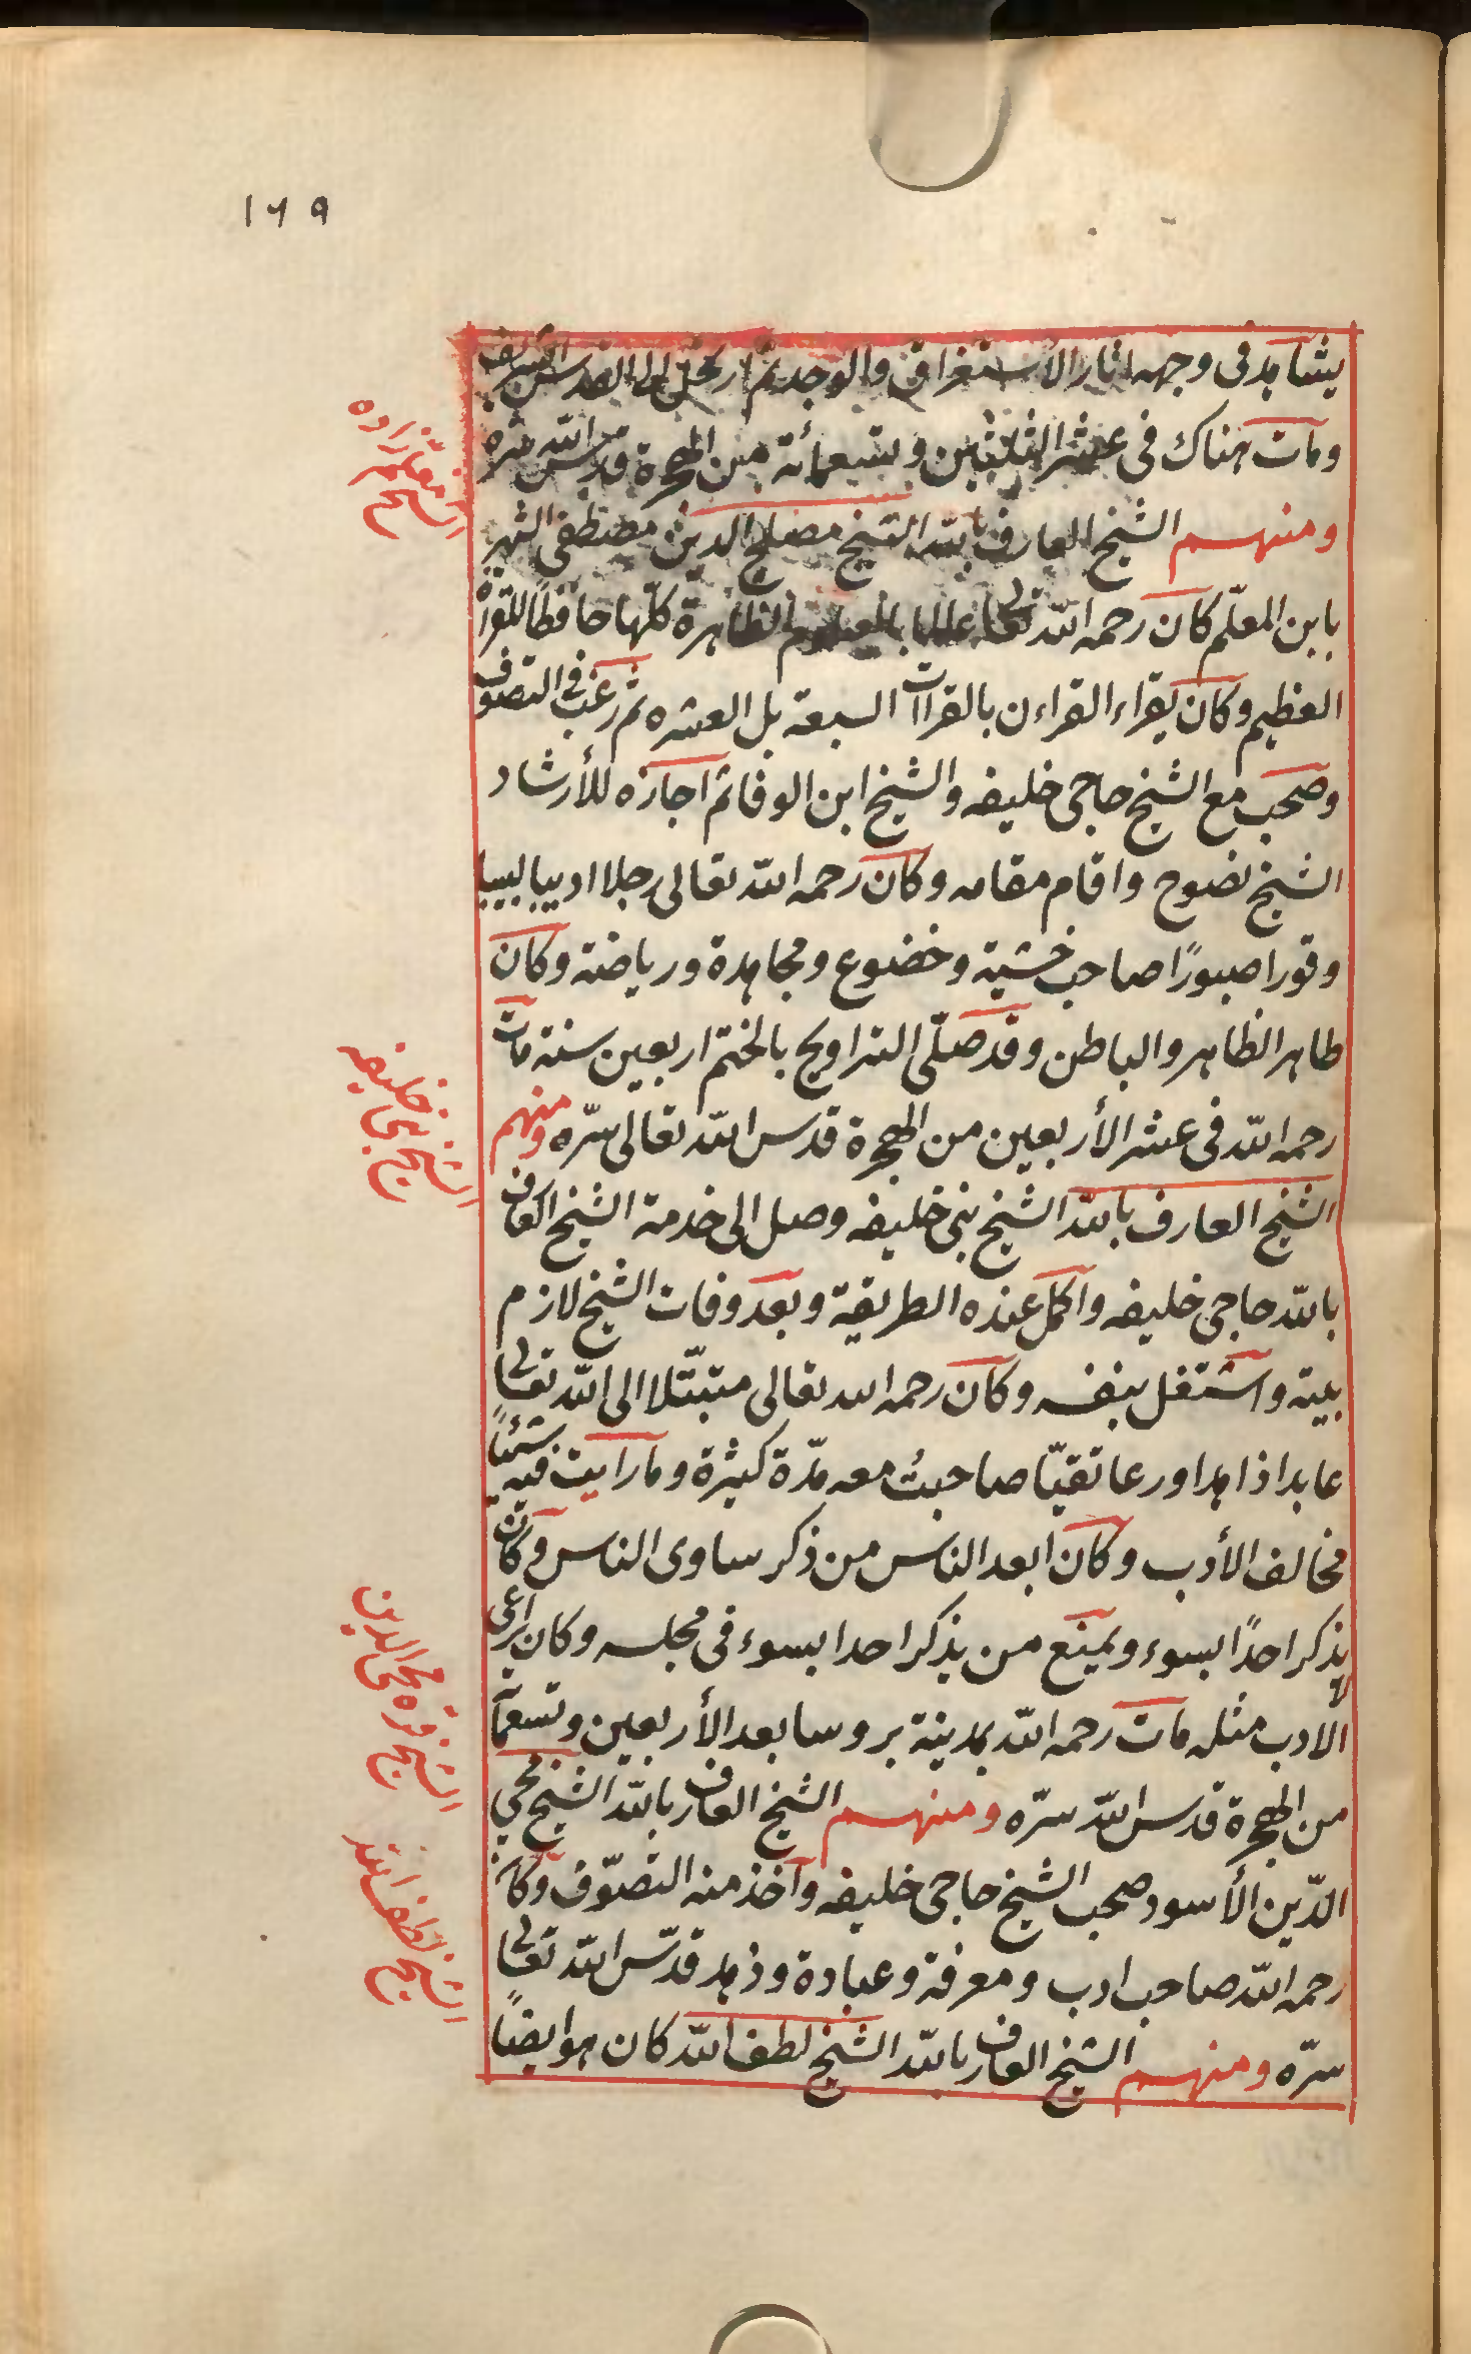 ١٦٩
يشاهد فى وجهه اثار الاستغراق والوجد ثم ارتحل الى القدس الشريف
ومات هناك فى عشر الثلثين وتسعمائة من الهجرة قدس الله سره
الشيخ معلم زاده
ومنهم الشيخ العارف بالله الشيخ مصلح الدين مصطفى الشهير
بابن المعلّم كان رحمه الله تعالى عالما بالعلوم الظاهرة كلّها حافظًا للقرأن
العظيم وكان يقراء القراءن بالقراات السبعة بل العشره ثم رغب فى التصوف
وصحب مع الشيخ حاجى خليفه والشيخ ابن الوفا ثم اجازه للأرشاد
الشيخ نصوح واقام مقامه وكان رحمه الله تعالى رجلا اديبا لبيبا
وقورا صبورًا صاحب خشية وخضوع ومجاهدة ورياضة وكان
طاهر الظاهر والباطن وقد صلّى التراويح بالختم اربعين سنة مات
رحمه الله فى عشر الأربعين من الهجرة قدس الله تعالى سرّه ومنهم
الشيخ نبى خليفه
الشيخ العارف بالله الشيخ نبى خليفه وصل الى خدمة الشيخ العارف
بالله حاجى خليفه واكمل عنده الطريقة وبعد وفات الشيخ لازم
بيته واشتغل بنفسه وكان رحمه الله تعالى متبتّلا الى الله تعالى
عابدا زاهدا ورعا تقيّا صاحبتُ معه مدّة كثيرة وما رايت فيه شيئًا
مخالف الأدب وكان ابعد الناس من ذكر ساوى الناس وكان
لا يذكر احدًا بسوء ويمنع من يذكر احدا بسوء فى مجلسه وكان يراعى
الشيخ قره محى الدين
الادب مثله مات رحمه الله بمدينة بروسا بعد الأربعين وتسعمائة
من الهجرة قدس الله سرّه ومنهم الشيخ العارف بالله الشيخ محيي
الدّين الأسود صحب الشيخ حاجى خليفه وآخذ منه التصوّف وكان
الشيخ لطف الله
رحمه الله صاحب ادب ومعرفة وعبادة وزهد قدّس الله تعالى
سرّه ومنهم الشيخ العارف بالله الشيخ لطف الله كان هو ايضًا